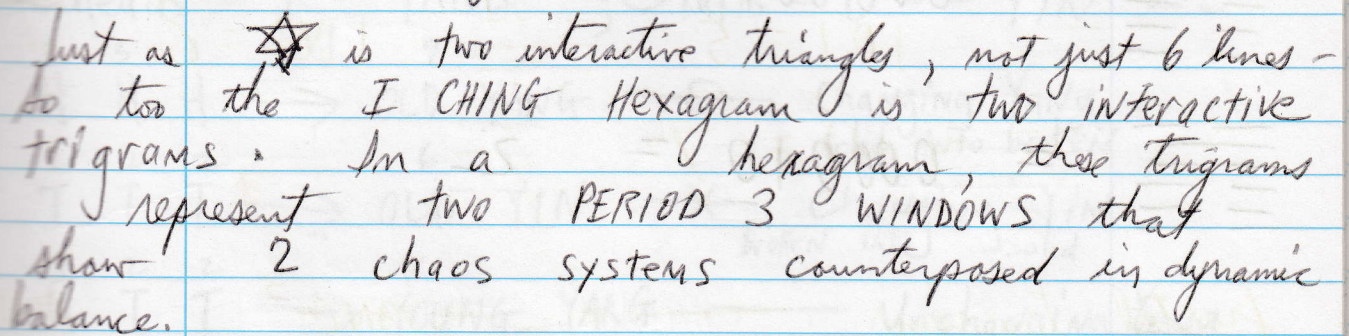 Just as ✡ is two interactive triangles, not just 6 lines -
so too the I CHING Hexagram is two interactive
trigrams. In a hexagram, these trigrams
represent two PERIOD 3 WINDOWS that
show 2 chaos systems counterposed in dynamic
balance.